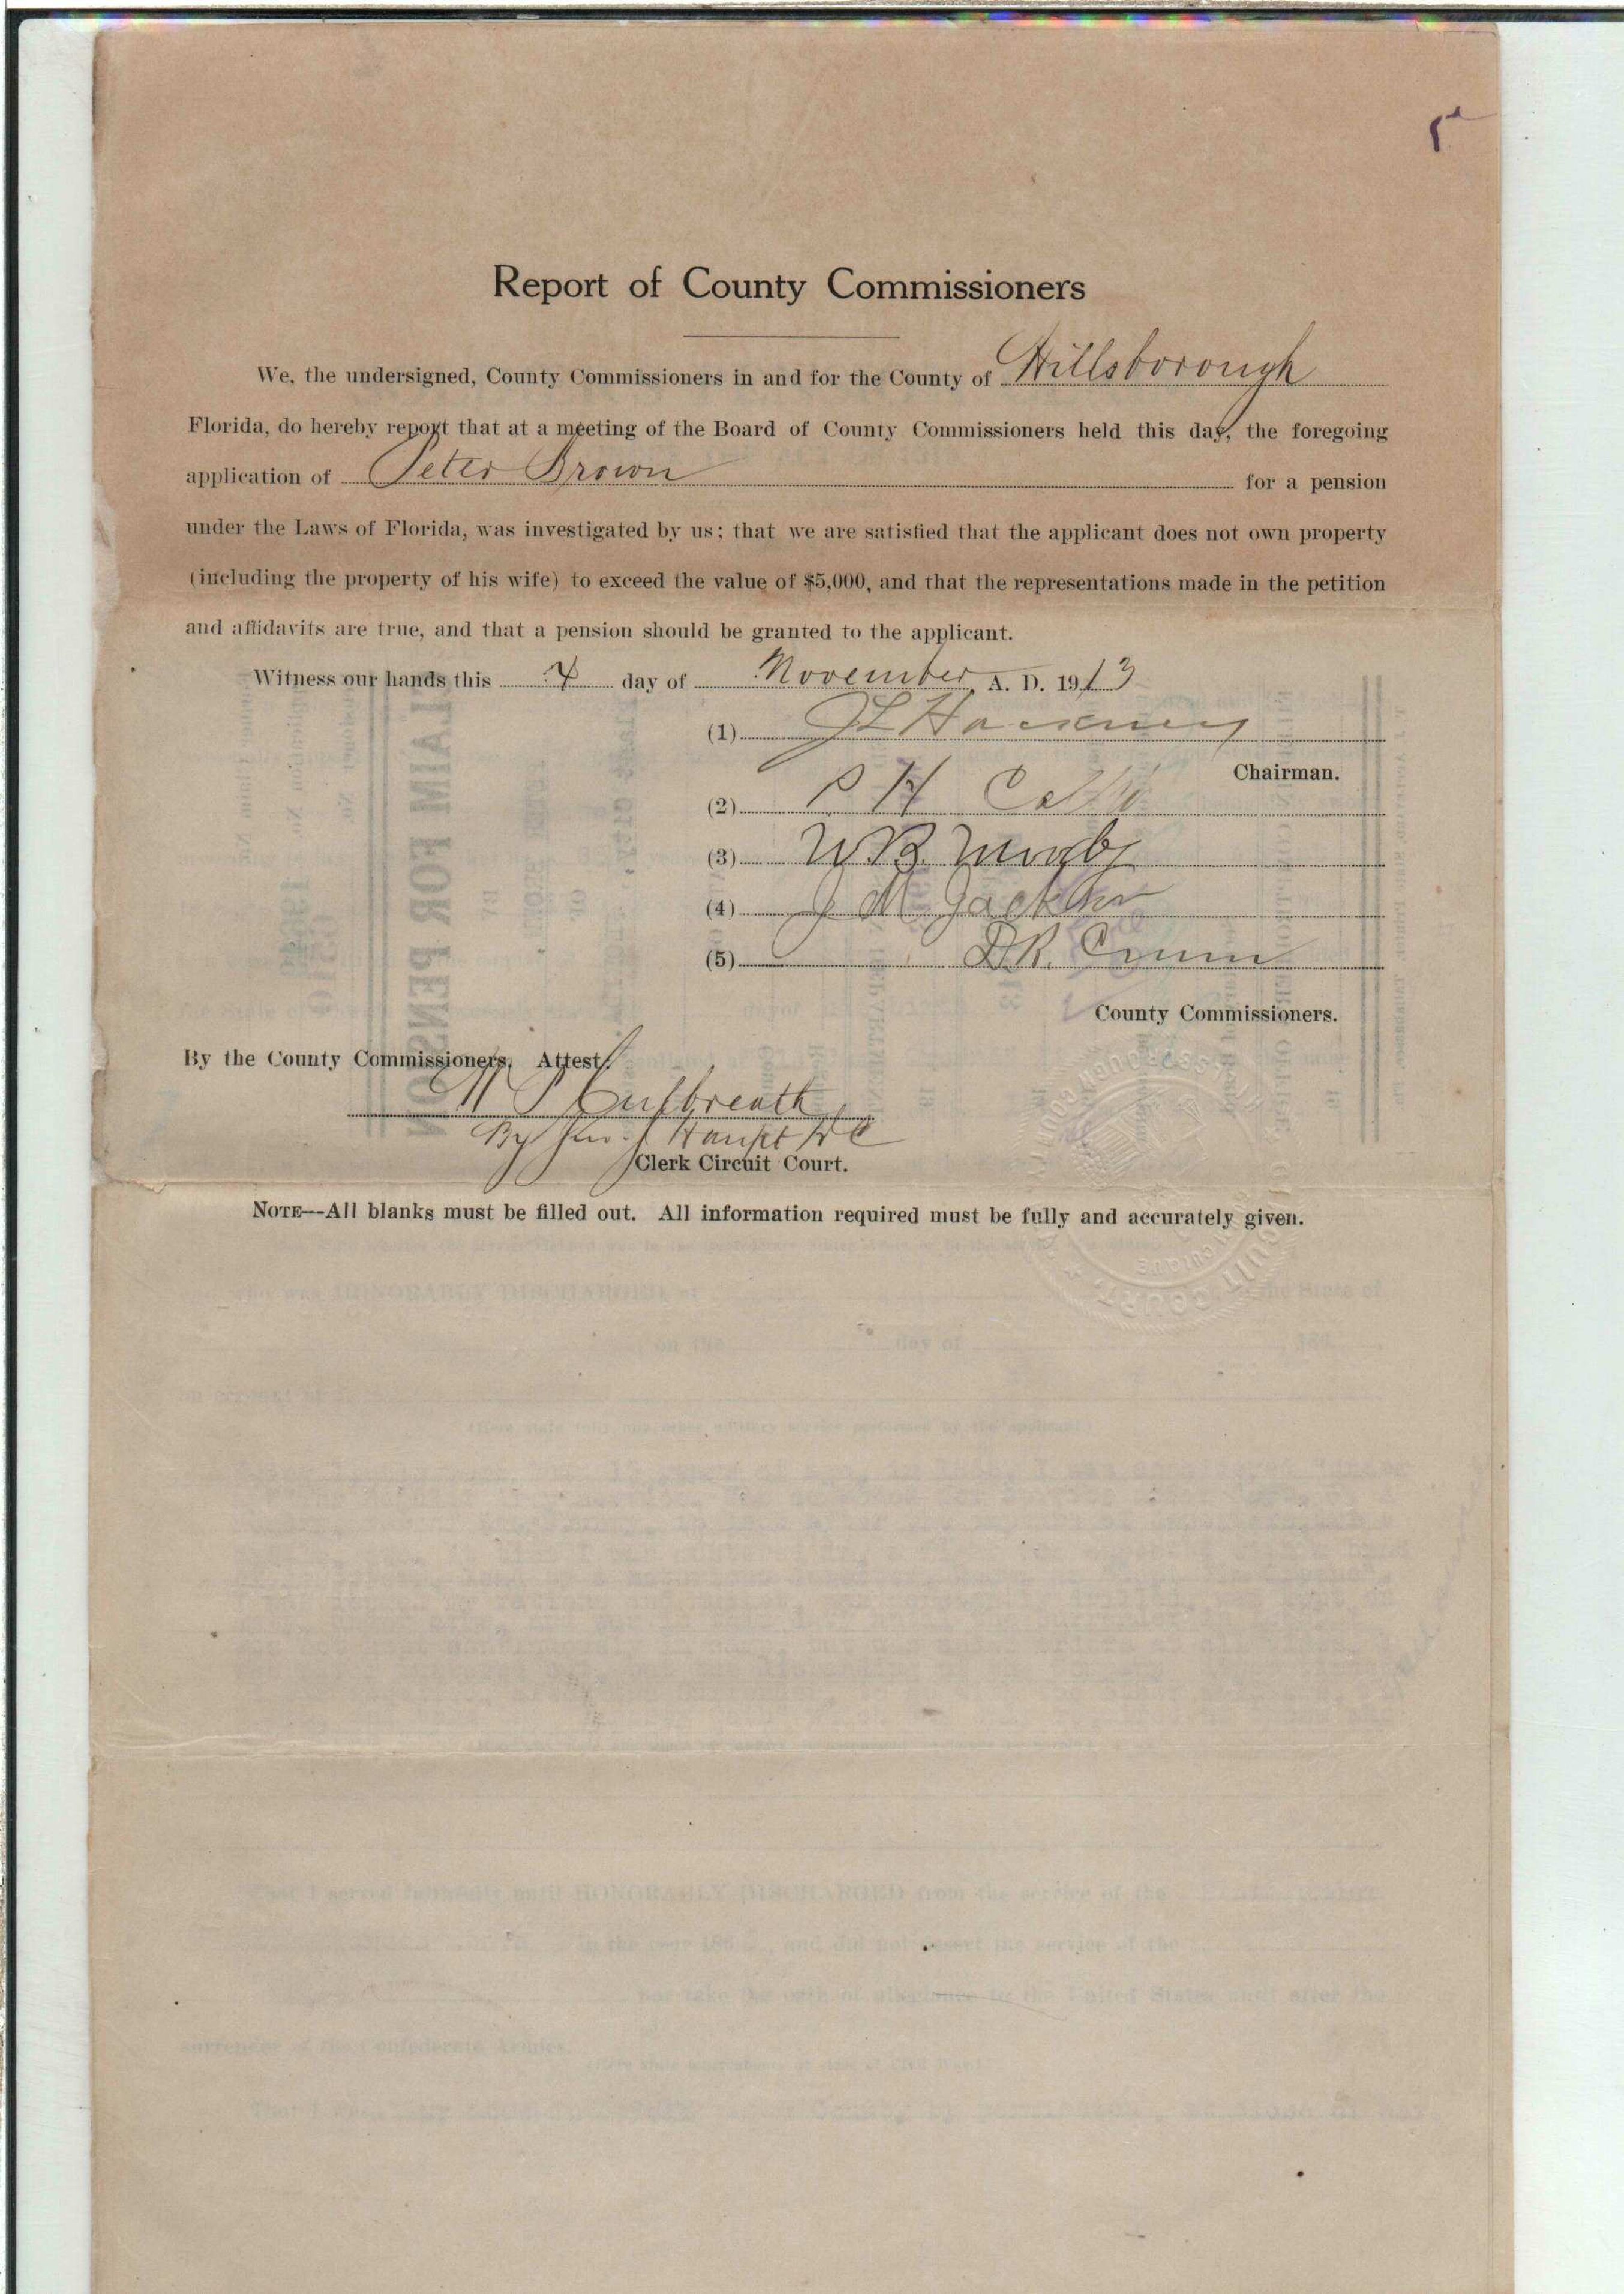 Report of County Commissioners
We, the undersigned, County Commissioners in and for the County of Hillsborough
Florida, do hereby report that at a meeting of the Board of County Commissioners held this day, the foregoing
application of Peter Brown for a pension
under the Laws of Florida, was investigated by us; that we are satisfied that the applicant does not own property
(including the property of his wife) to exceed the value of $5,000, and that the representations made in the petition
and affidavits are true, and that a pension should be granted to the applicant.
Witness our hands this 7 day of November A. D. 1913
(1) JL Hackney
Chairman.
(2)
(3) W B
(4) J M Jackson
(5) D.R. Crum
County Commissioners.
By the County Commissioners, Attest:
Culbreath
By Jno. J Haupt DC
Clerk Circuit Court.
NOTE—All blanks must be filled out. All information required must be fully and accurately given.